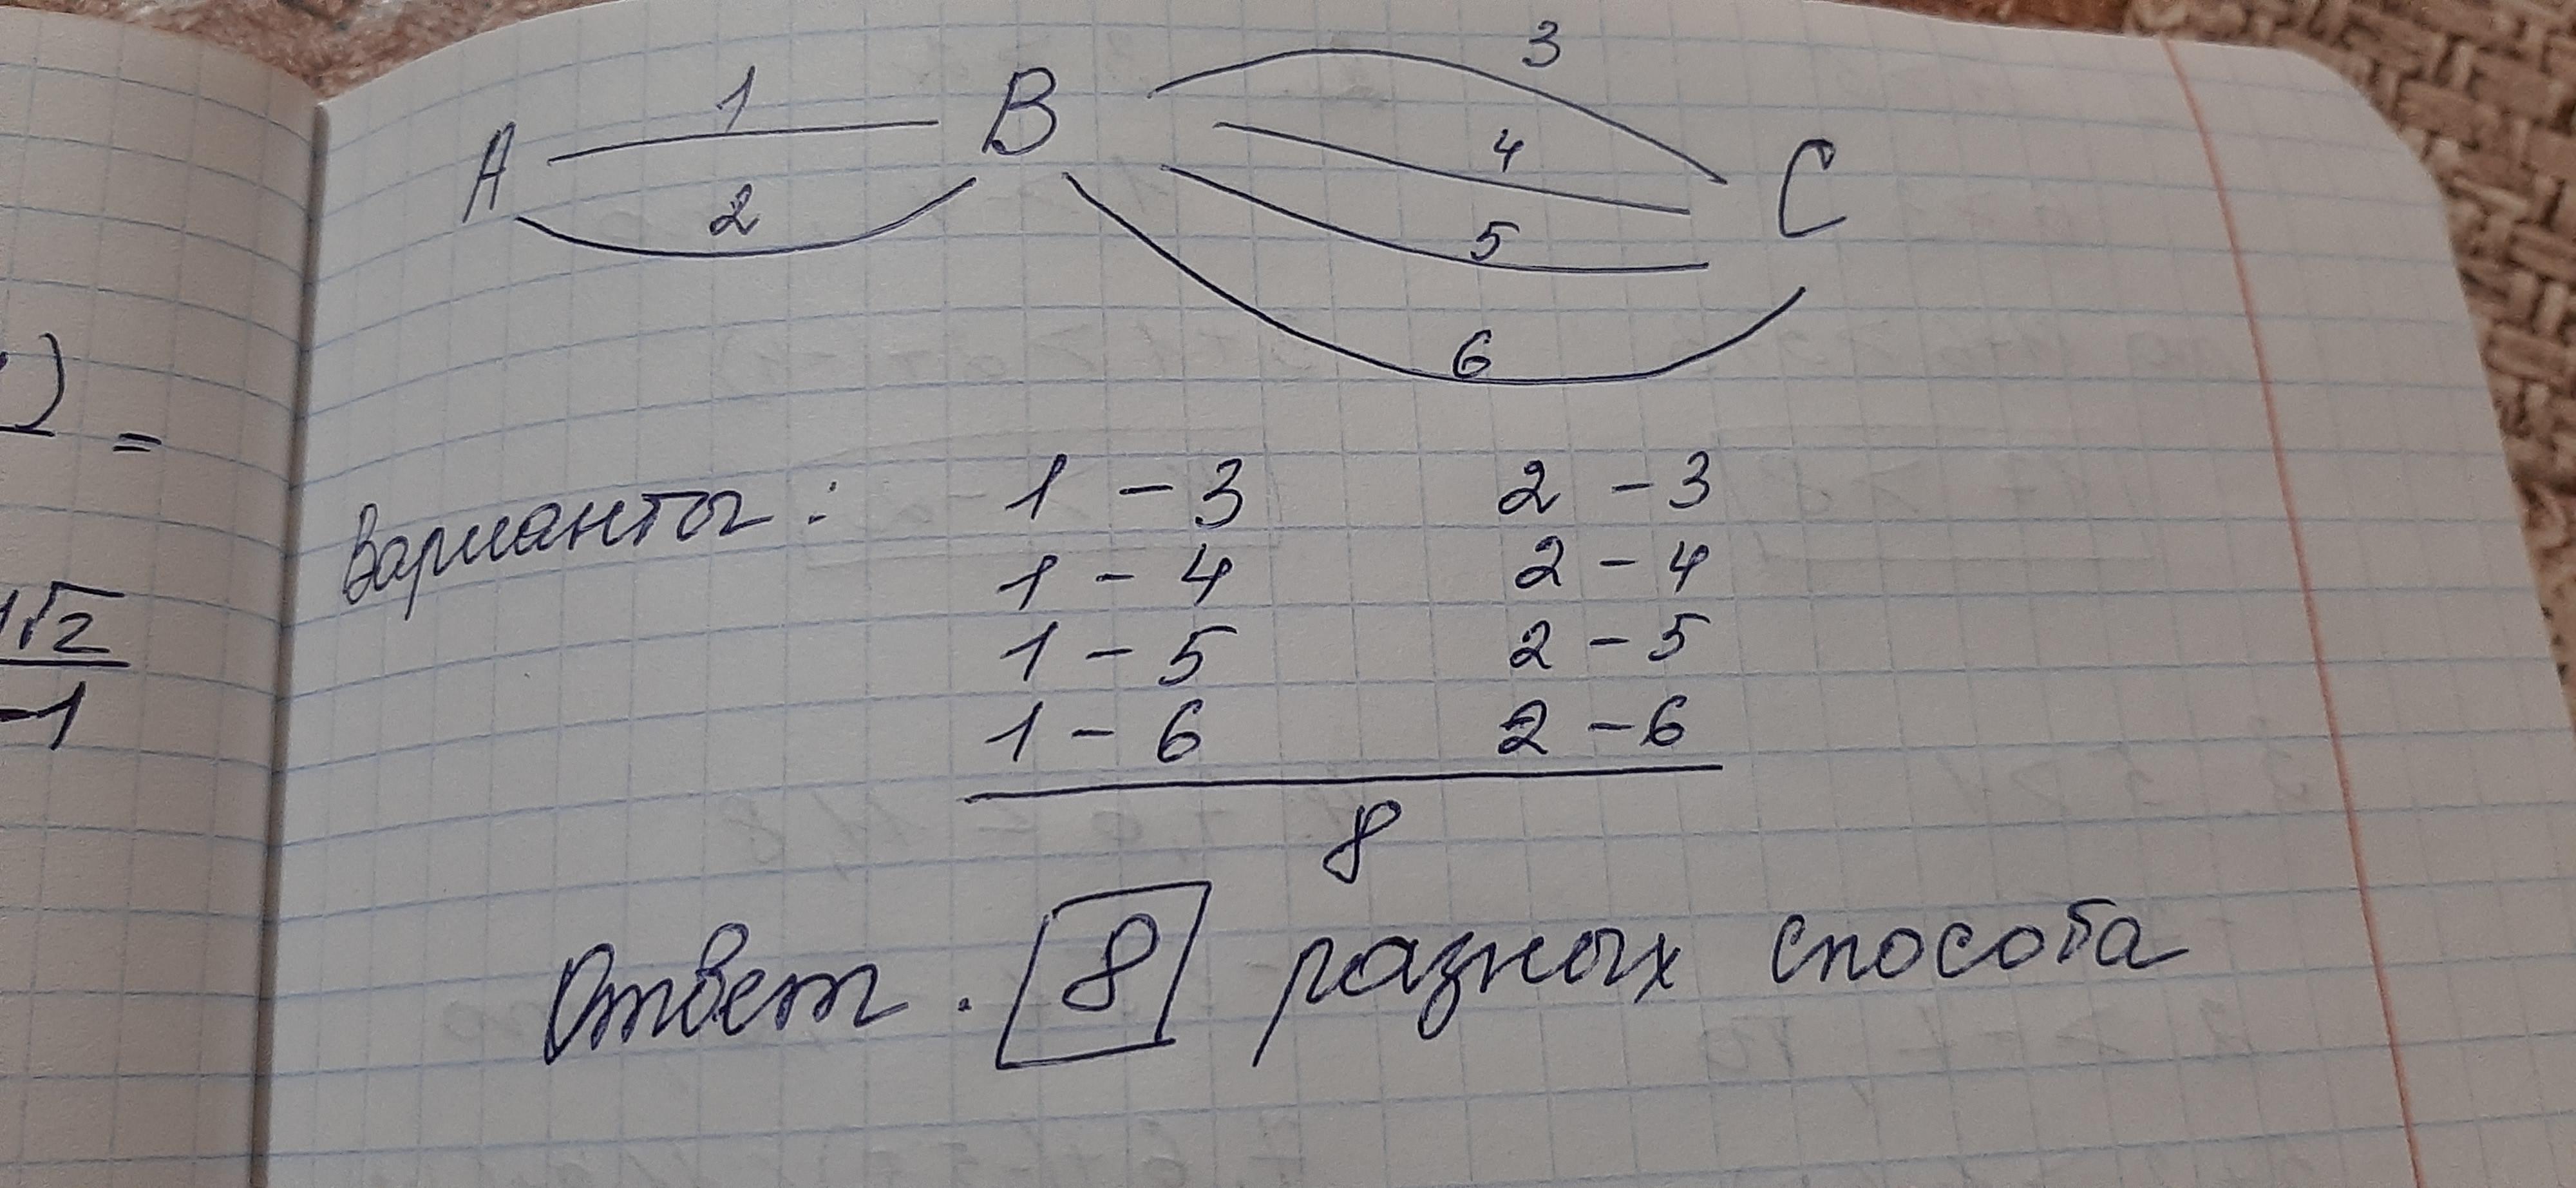 1
3
A
B
4
C
2
5
6
) =
Варианты: 1 – 3 2 – 3
1 – 4 2 – 4
1√2
1 – 5 2 – 5
–1
1 – 6 2 – 6
8
Ответ. 8 разных способа